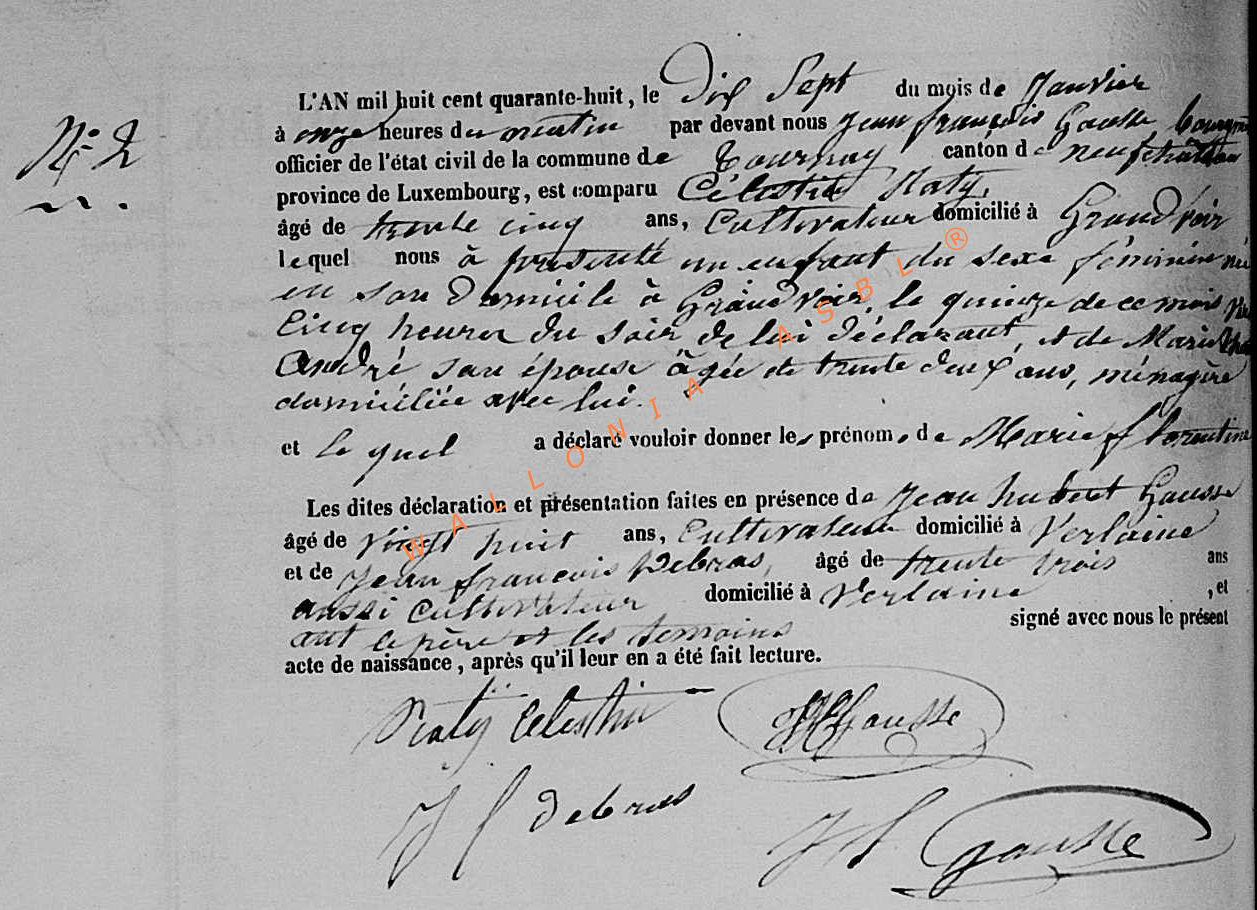 L'AN mil huit cent quarante-huit, le Dix Sept du mois de Janvier
N° 2
à onze heures du matin par devant nous Jean françois Gousse
officier de l'état civil de la commune de Tournay canton de neufchâteau
province de Luxembourg, est comparu Célestin
âgé de trente cinq ans, Cultivateur domicilié à Grandvoir
lequel nous à présenté un enfant du sexe féminin né
en son domicile à Grandvoir, le quinze de ce mois
Cinq heures du soir de lui déclarant, et de Marie
André son épouse âgée de trente deux ans, ménagère
domiciliée avec lui.
et le quel a déclaré vouloir donner les prénoms de Marie florentine
Les dites déclaration et présentation faites en présence de Jean hubert Gousse
âgé de vingt huit ans, Cultivateur domicilié à Verlaine
et de Jean françois Debras, âgé de trente trois ans
aussi cultivateur domicilié à Verlaine, et
ont le père et les temoins signé avec nous le présent
acte de naissance, après qu'il leur en a été fait lecture.
Célestin Gousse
J f debras
Gousse
WALLONIA ASBL ®